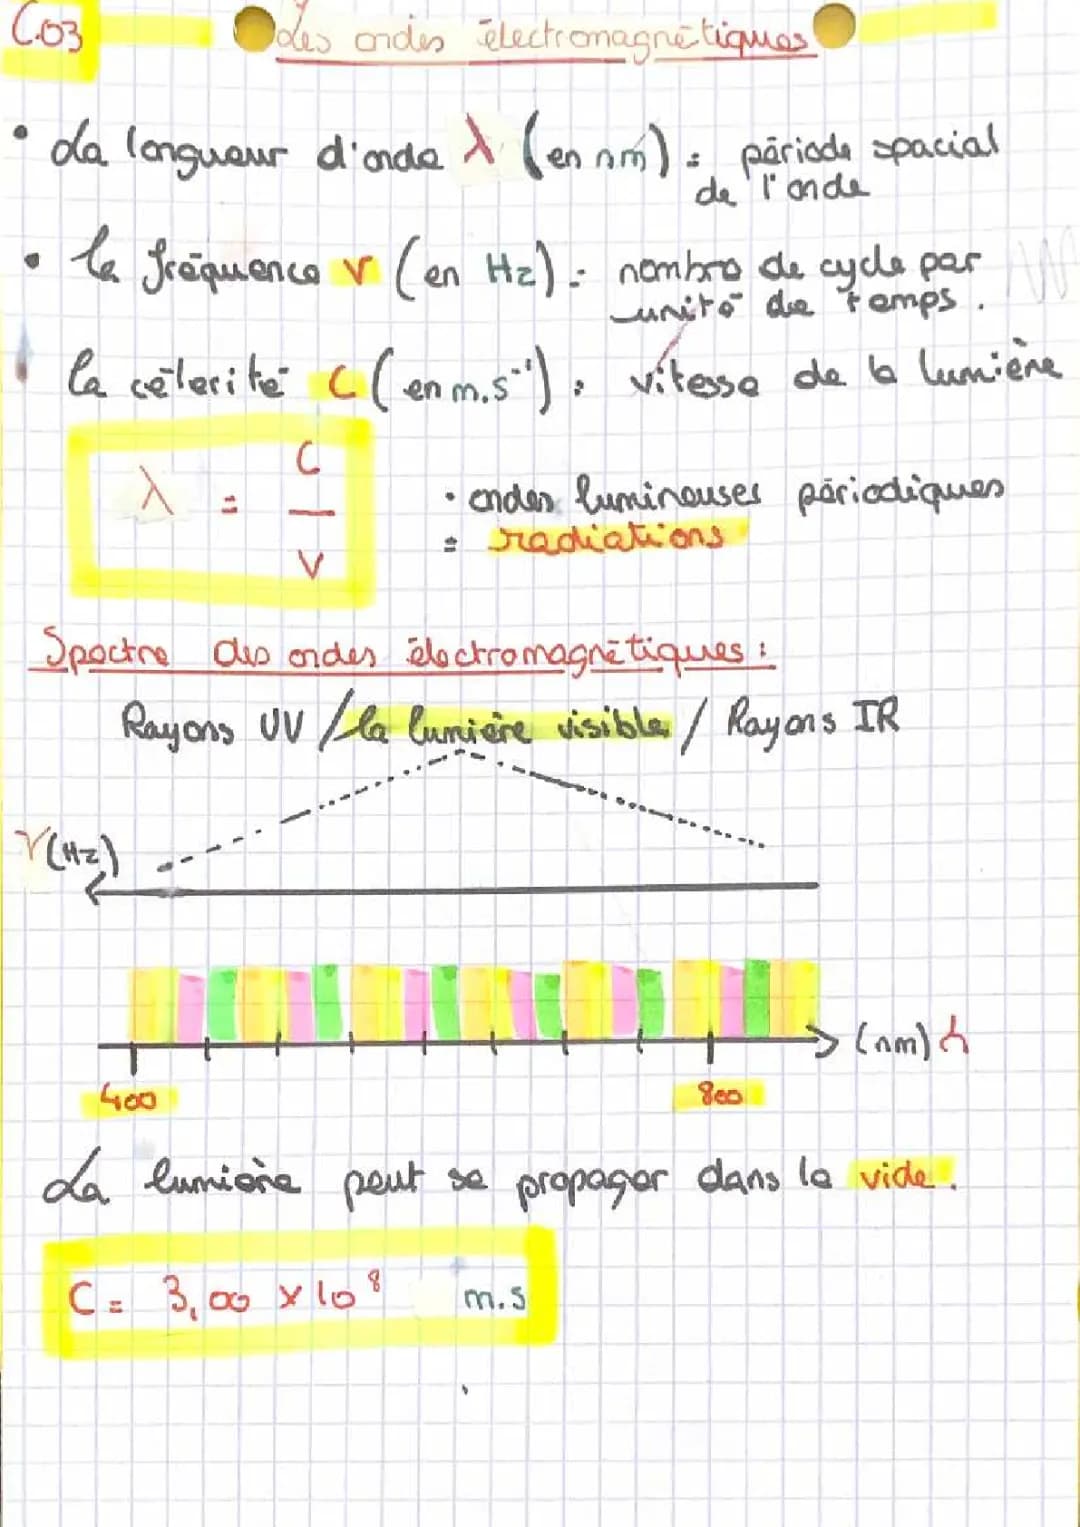 C.03
Les ondes électromagnétiques
• La longueur d'onde λ (en nm) : période spacial
de l'onde
• la fréquence ν (en Hz) : nombre de cycle par
unité de temps.
la célerité C (en m.s⁻¹) : vitesse de la lumière
λ = C / ν
• ondes lumineuses périodiques
= radiations
Spectre des ondes électromagnétiques :
Rayons UV / la lumière visible / Rayons IR
ν (Hz)
(nm) λ
400 800
La lumière peut se propager dans le vide.
C = 3,00 × 10⁸ m.s